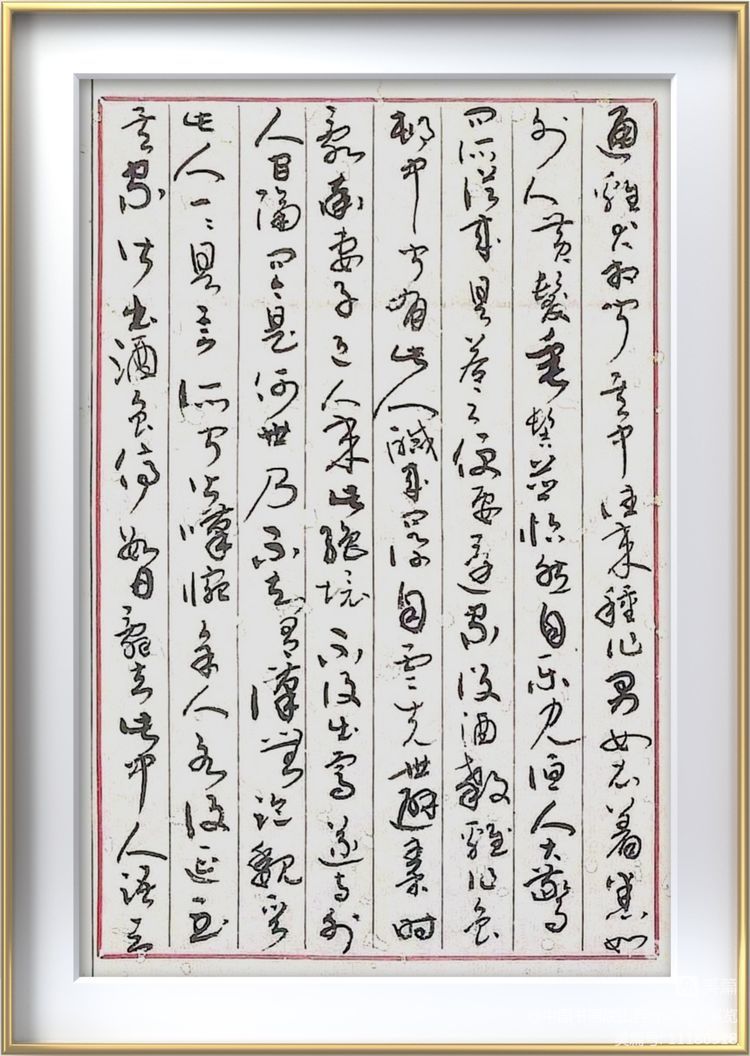 通雞犬相聞其中往來種作男女衣著悉如
外人黃髮垂髫並怡然自樂見漁人大驚
問所從來具答之便要還家設酒殺雞作食
村中聞有此人鹹來問訊自云先世避秦時
亂率妻子邑人來此絕境不復出焉遂與外
人間隔問今是何世乃不知有漢無論魏晉
此人一一具言所聞皆嘆惋餘人各復延至
其家皆出酒食停數日辭去此中人語云
美篇